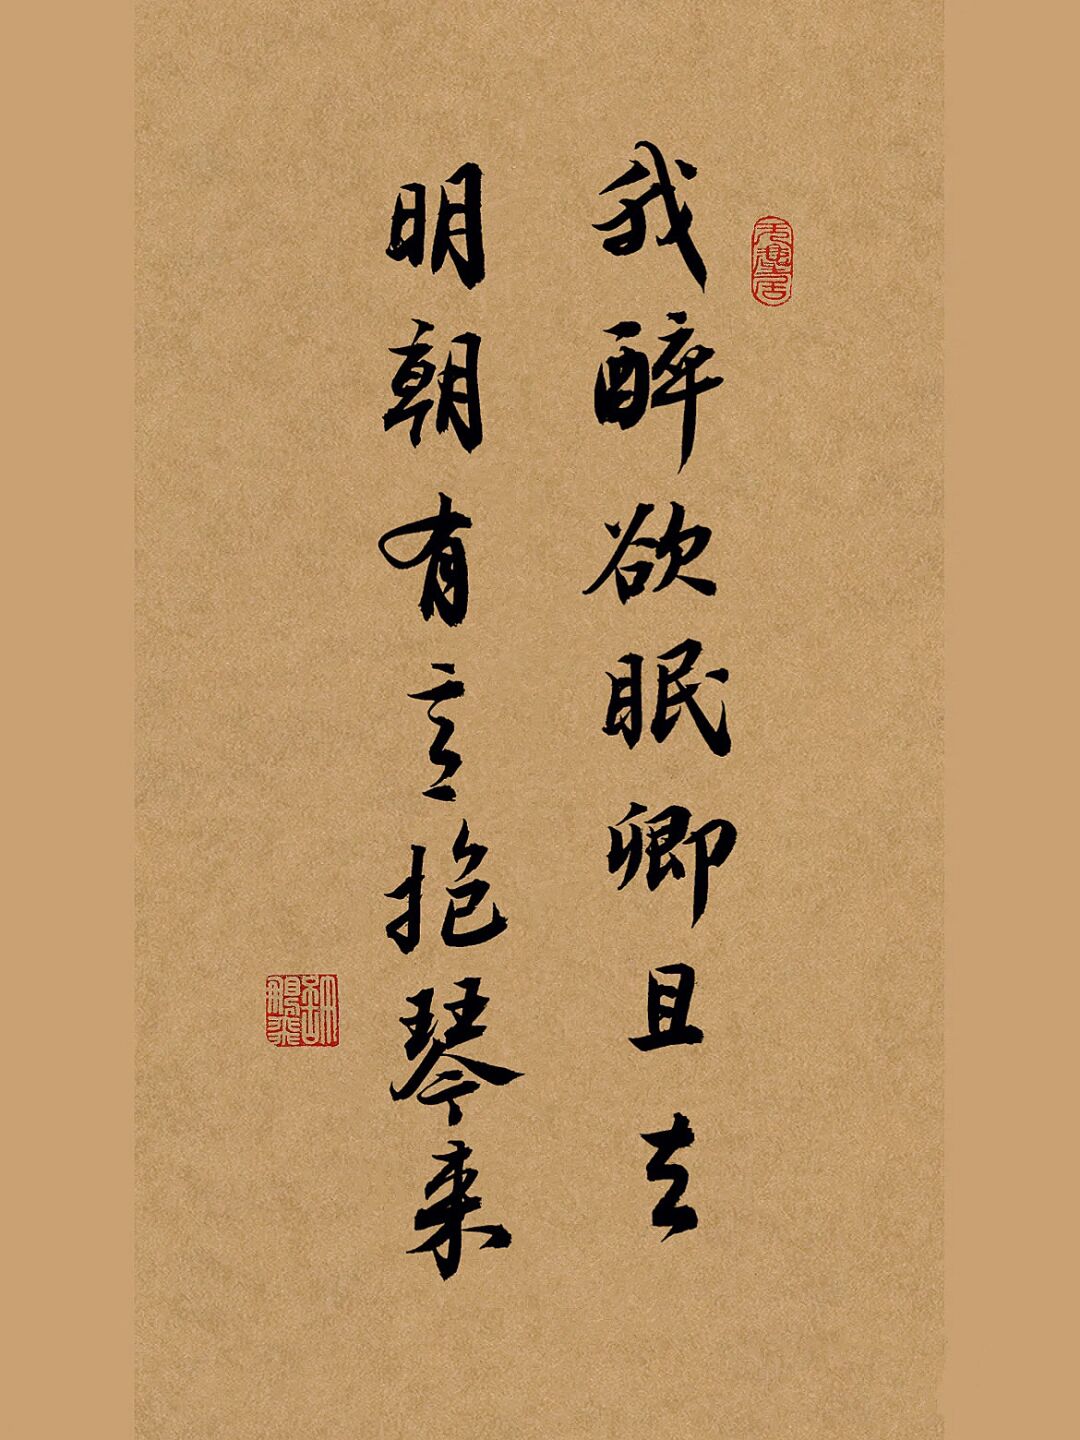 我醉欲眠卿且去
明朝有意抱琴来